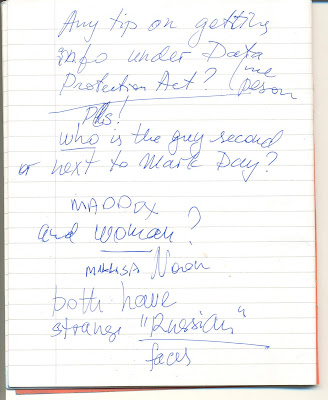 Any tip on getting
info under Data
Protection Act? (me
person
Pls!
who is the guy second
or next to Mark Day?
MADDOX
and woman?
MELISSA Noon
both have
strange "Russian"
faces